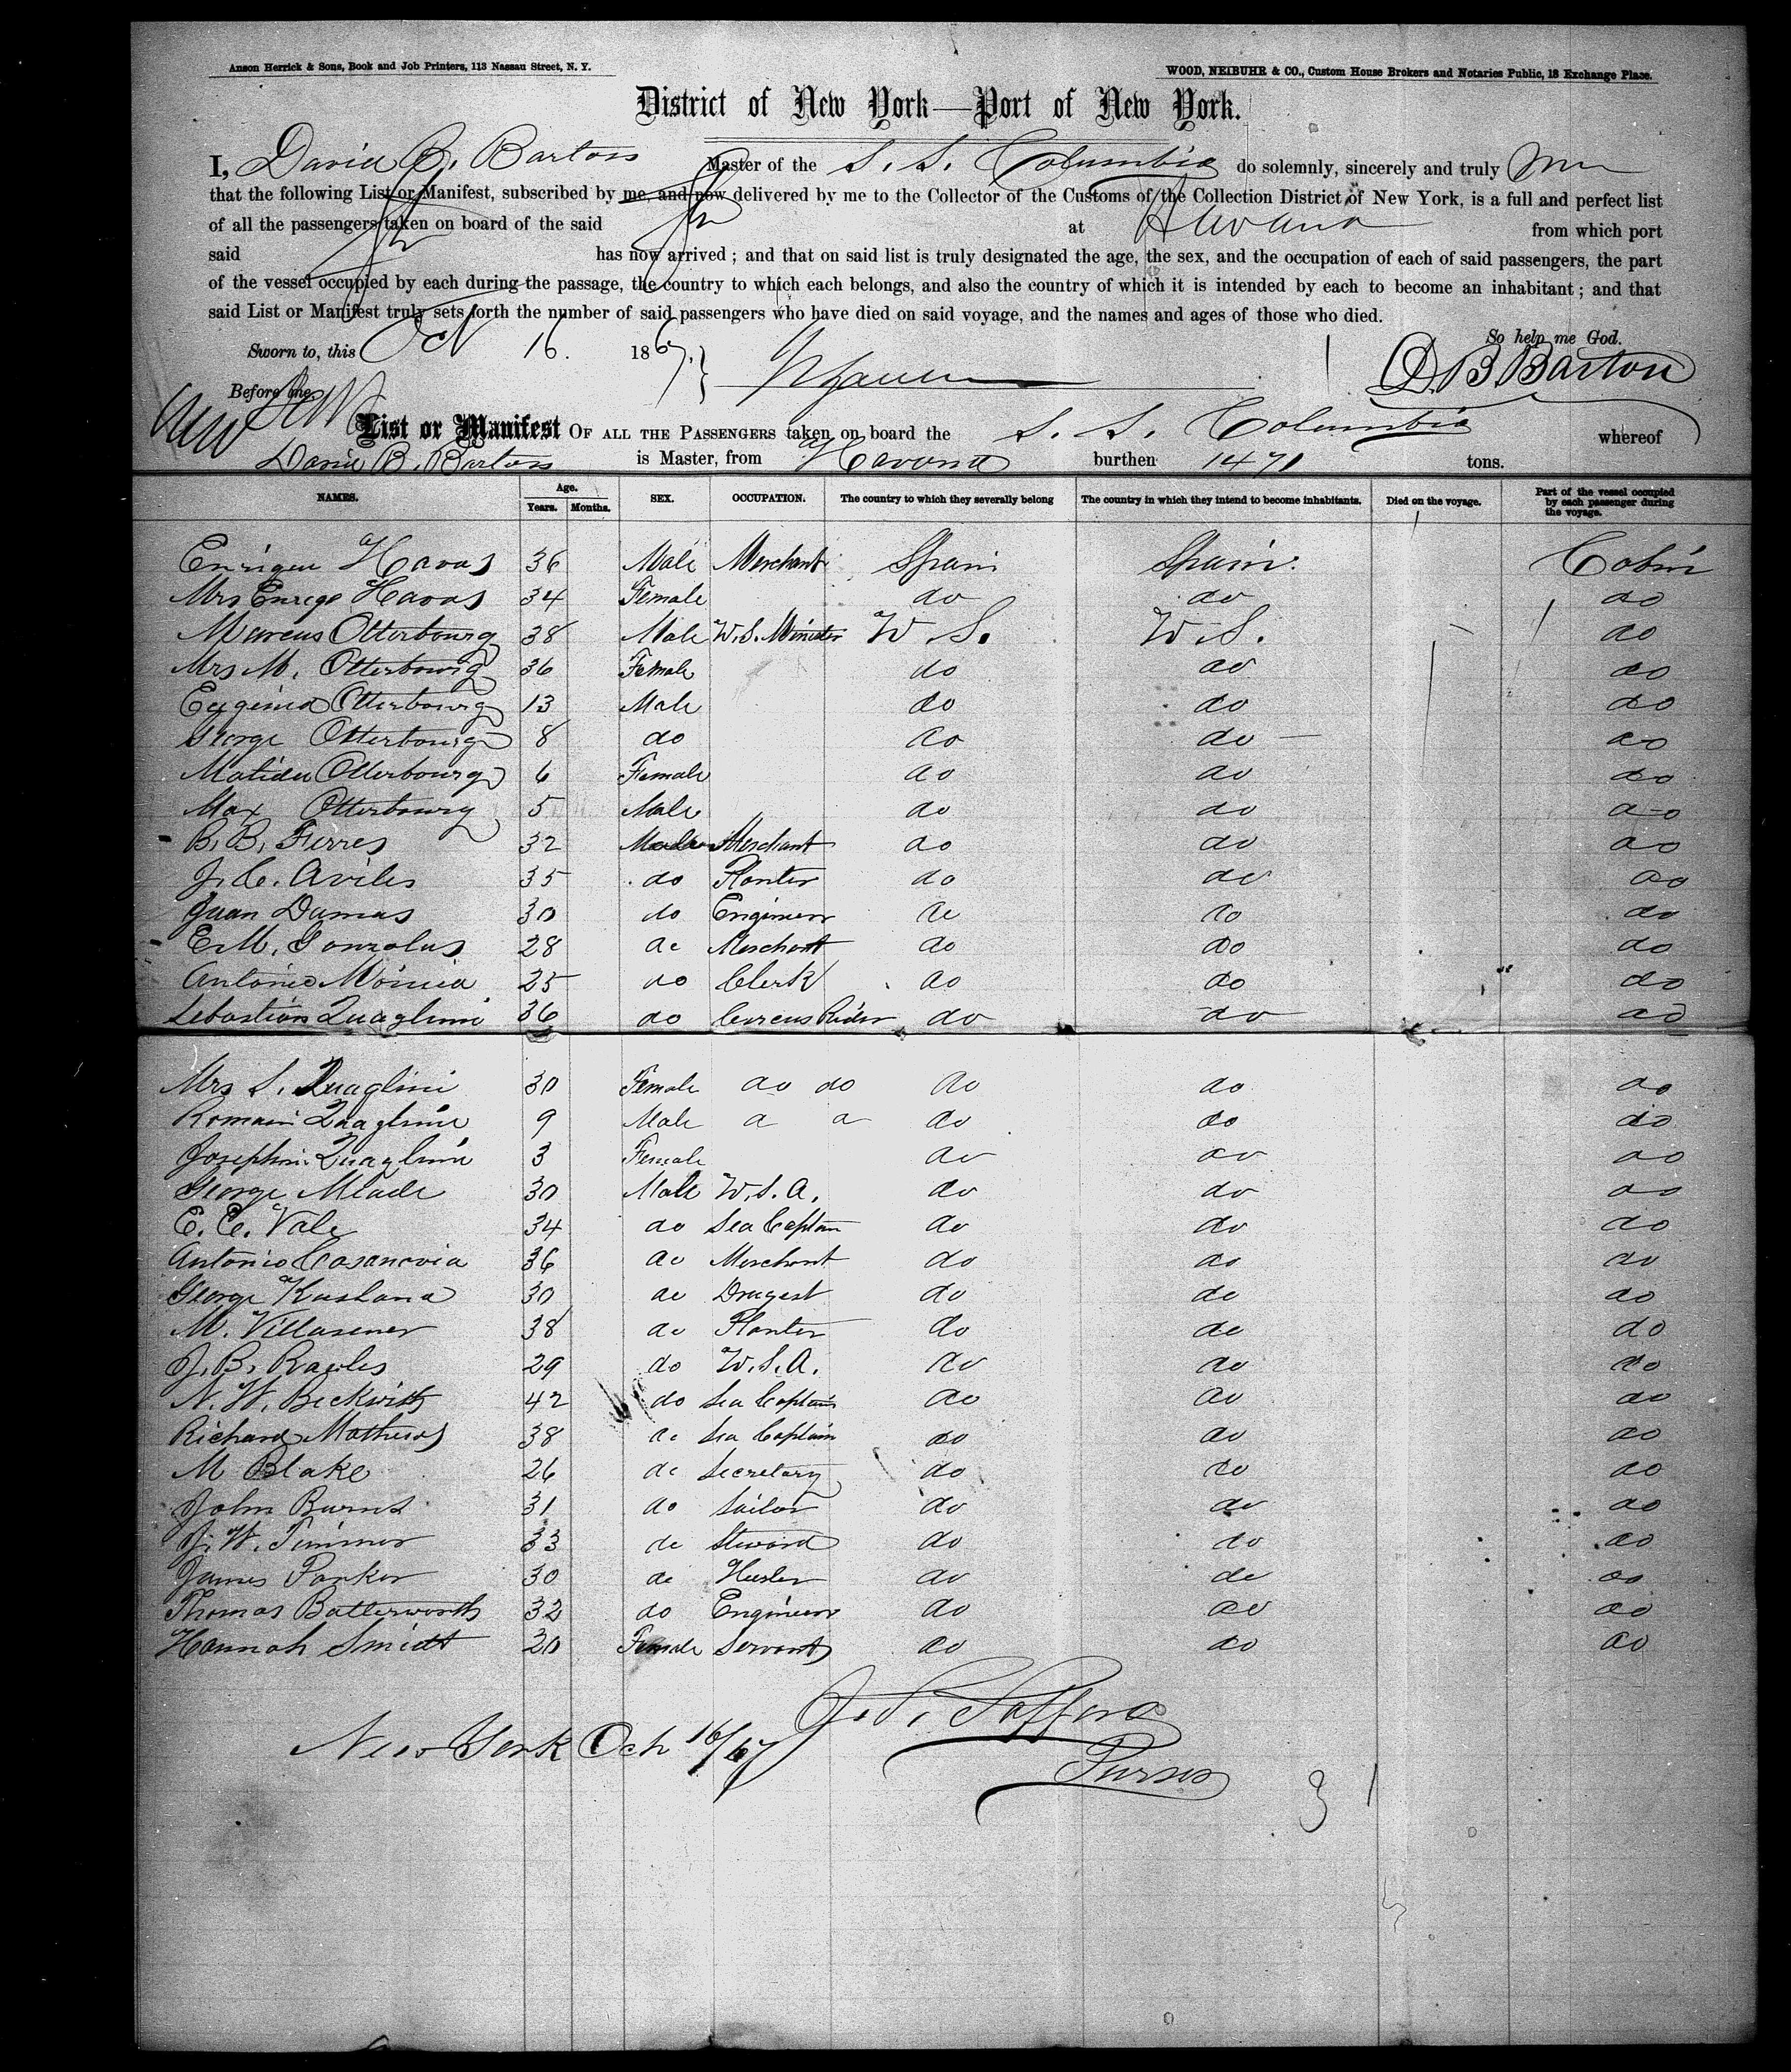 Anson Herrick & Sons, Book and Job Printers, 113 Nassau Street, N. Y. WOOD, NEIBUHR & CO., Custom House Brokers and Notaries Public, 18 Exchange Place.
District of New York—Port of New York.
I, David B. Barton Master of the S. S. Columbia do solemnly, sincerely and truly
that the following List or Manifest, subscribed by me, and now delivered by me to the Collector of the Customs of the Collection District of New York, is a full and perfect list
of all the passengers taken on board of the said at Havana from which port
said has now arrived ; and that on said list is truly designated the age, the sex, and the occupation of each of said passengers, the part
of the vessel occupied by each during the passage, the country to which each belongs, and also the country of which it is intended by each to become an inhabitant ; and that
said List or Manifest truly sets forth the number of said passengers who have died on said voyage, and the names and ages of those who died.
So help me God.
Sworn to, this Oct 16. 1867. D B Barton
Before me,
List or Manifest OF ALL THE PASSENGERS taken on board the S. S. Columbia whereof
David B. Barton is Master, from Havana burthen 1471 tons.
NAMES. Age. Years. Months. SEX. OCCUPATION. The country to which they severally belong The country in which they intend to become inhabitants. Died on the voyage. Part of the vessel occupied by each passenger during the voyage.
Enrique Havas 36 Male Merchant Spain Spain Cabin
Mrs Enrique Havas 34 Female do do do
Marcus Otterbourg 38 Male U.S. Minister U S. U.S. do
Mrs M. Otterbourg 36 Female do do do
Eugenia Otterbourg 13 Male do do do
George Otterbourg 8 do do do do
Matilda Otterbourg 6 Female do do do
Max Otterbourg 5 Male do do do
B. B. Ferres 32 Male Merchant do do do
J. C. Aviles 35 do Planter do do do
Juan Dumas 30 do Engineer do do do
E. M. Gonzalus 28 do Merchant do do do
Antonio 25 do Clerk do do do
Sebastian Quaglini 36 do Circus Rider do do do
Mrs S. Quaglini 30 Female do do do do do
Romain Quaglini 9 Male do do do do do
Josephine Quaglini 3 Female do do do
George Meade 30 Male U.S.A. do do do
E. C. Vale 34 do Sea Captain do do do
Antonio Casanovia 36 do Merchant do do do
George Kuslana 30 do Drugest do do do
M. Villasener 38 do Planter do do do
J. B. Rawles 29 do U.S.A. do do do
N. W. Beckwith 42 do Sea Captain do do do
Richard Mathews 38 do Sea Captain do do do
M Blake 26 do Secretary do do do
John Burns 31 do Sailor do do do
J. W. Timmer 33 do Steward do do do
James Parker 30 do do do do
Thomas Butterworth 32 do Engineer do do do
Hannah Smidt 20 Female Servant do do do
New York Oct 16/67 J. P. Safford
Purser
31